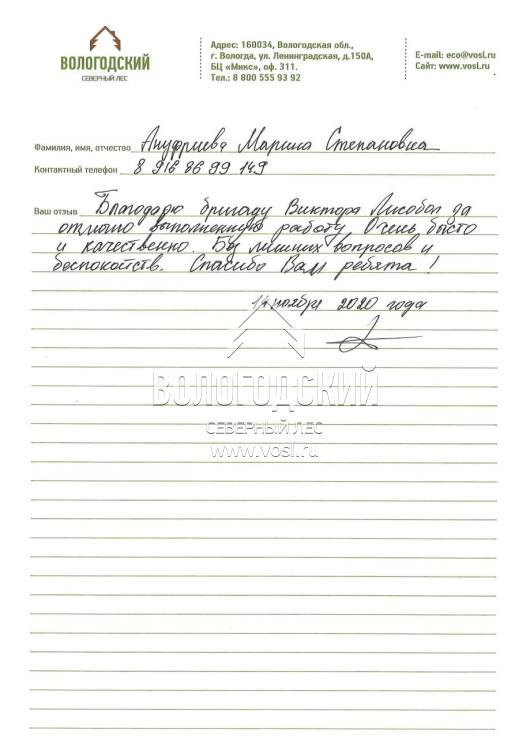 ВОЛОГОДСКИЙ
СЕВЕРНЫЙ ЛЕС
Адрес: 160034, Вологодская обл.,
г. Вологда, ул. Ленинградская, д.150А,
БЦ «Микс», оф. 311.
Тел.: 8 800 555 93 92
E-mail: eco@vosl.ru
Сайт: www.vosl.ru
Фамилия, имя, отчество Ануфриева Марина Степановна
Контактный телефон 8 916 86 99 149
Ваш отзыв Благодарю бригаду Виктора Лисобол за
отлично выполненную работу. Очень быстро
и качественно. Без лишних вопросов и
беспокойств. Спасибо Вам ребята!
14 ноября 2020 года
ВОЛОГОДСКИЙ
СЕВЕРНЫЙ ЛЕС
www.vosl.ru